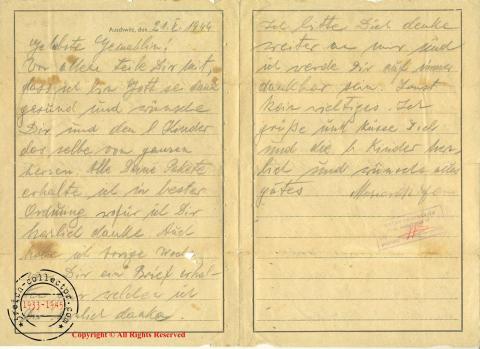 Auschwitz, den 21.X. 1944
Geliebte Gemahlin!
Vor allem teile Dir mit,
dass ich bin Gott sei dank
gesund und wünsche
Dir und den l. Kinder
das selbe von ganzen
herzen. Alle Deine Pakete
erhalte ich in bester
Ordnung wofür ich Dir
herlich danke. Auch
habe ich vorige Woche
Dir ein Brief erhal-
welchen ich
herlich danke.
Ich bitte Dich denke
weiter an mir und
ich werde Dir auf immer
dankbar sein. Sonst
kein wichtiges. Ich
grüße und küsse Dich
und die l. Kinder her-
lich und wünsche alles
gutes
third-reich-collector.com
1933-1945
Copyright © All Rights Reserved